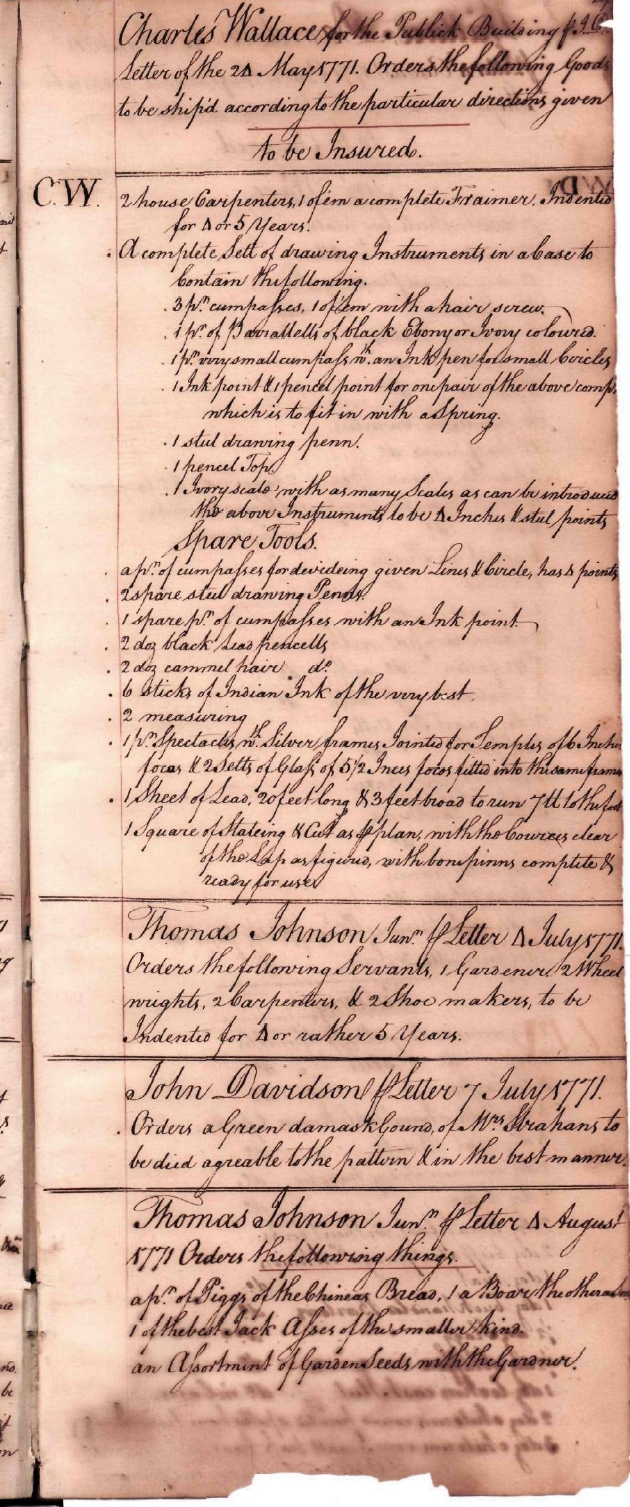 Charles Wallace for the Publick Building ⅌ J.C.
Letter of the 24 May 1771. Orders the following Goods
to be ship'd according to the particular directions given
to be Insured.
C.W. 2 house Carpenters, 1 of em a complete Fraimer. Indented
for 4 or 5 Years.
A complete Sett of drawing Instruments in a Case to
Contain the following.
3 pr. cumpasses, 1 of em with a hair screw.
1 pr. of Parrallells of black Ebony or Ivory coloured.
1 pr. very small cumpass wth. an Ink pen for small Circles
1 Ink point & 1 pencel point for one pair of the above comps.
which is to fit in with a Spring.
1 steel drawing penn.
1 pencel Top.
1 Ivory scale, with as many Scales as can be introduced
the above Instruments to be 4 Inches & steel points
Spare Tools.
a pr. of cumpasses for devideing given Lines & Circle, has 4 points
2 spare steel drawing Penns.
1 spare pr. of cumpasses with an Ink point
2 doz black Lead pencells
2 doz cammel hair do.
6 sticks of Indian Ink of the very best.
2 measuring
1 pr. Spectacles, wth. Silver frames Jointed for Temples of 6 Inches
focas & 2 Setts of Glass of 5 1/2 Inces focos fitted into the same frames
1 Sheet of Lead, 20 feet long & 3 feet broad to run 7 ll to the foot
1 Square of Slateing & Cut as ⅌ plan, with the Cources clear
of the Lap as figured, with bone pinns complete &
ready for use
Thomas Johnson Junr. ⅌ Letter 4 July 1771.
Orders the following Servants, 1 Gardener 2 Wheel
wrights, 2 Carpenters, & 2 Shoe makers, to be
Indented for 4 or rather 5 Years.
John Davidson ⅌ Letter 7 July 1771.
Orders a Green damask Gound, of Mrs. Strahans to
be died agreable to the pattern & in the best manner.
Thomas Johnson Junr. ⅌ Letter 4 August
1771 Orders the following things.
a pr. of Piggs of the Chineas Bread, 1 a Boar the other a
1 of the best Jack Asses of the smaller kind.
an Assortment of Garden Seeds with the Gardner.